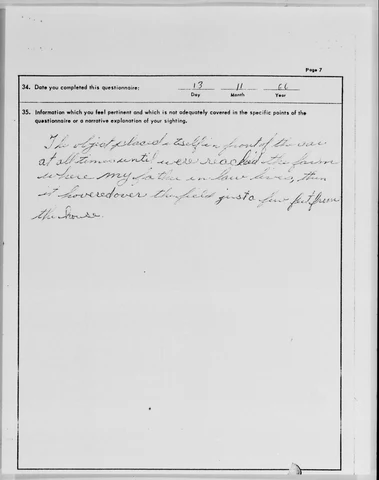 Page 7
34. Date you completed this questionnaire: 13 11 66
Day Month Year
35. Information which you feel pertinent and which is not adequately covered in the specific points of the
questionnaire or a narrative explanation of your sighting.
The object placed itself in front of the car
at all times until we reached the farm
where my father in law lives, then
it hovered over the field just a few feet from
the house.